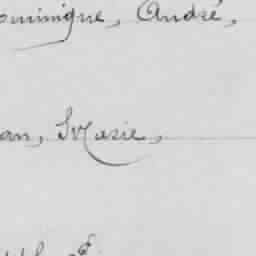 ominique, André,
an, Marie,